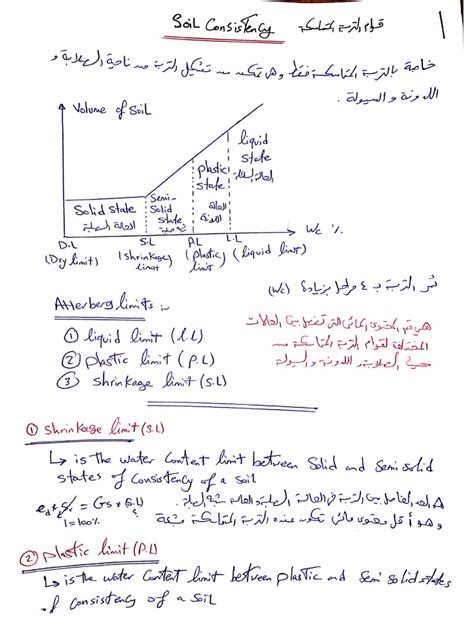 Soil Consistency قوام التربة المتماسكة
خاصة بالتربة المتماسكة فقط وهي تعبر عن تشكيل التربة من ناحية الصلابة و
اللدونة و السيولة .
Volume of Soil
liquid state
الحالة السائلة
plastic state
الحالة اللدنة
Semi-Solid state
Solid state
الحالة الصلبة
D.L S.L P.L L.L Wc %
(Dry limit) (shrinkage limit) (plastic limit) (liquid limit)
تمر التربة بـ ٤ مراحل بزيادة (Wc)
Atterberg limits :-
هي قيم المحتوى المائي التي تفصل بين الحالات
المختلفة لقوام التربة المتماسكة من
حيث الصلابة و اللدونة و السيولة
① liquid limit (L.L)
② plastic limit (P.L)
③ shrinkage limit (S.L)
① shrinkage limit (S.L)
↳ is the water content limit between Solid and Semi solid
states of consistency of a soil
الحد الفاصل بين التربة في الحالة الصلبة والحالة شبه الصلبة
= Gs *
1=100%
وهو أقل محتوى مائي تكون عنده التربة المتماسكة مشبعة
② plastic limit (P.L)
↳ is the water content limit between plastic and Semi solid states
of consistency of a soil